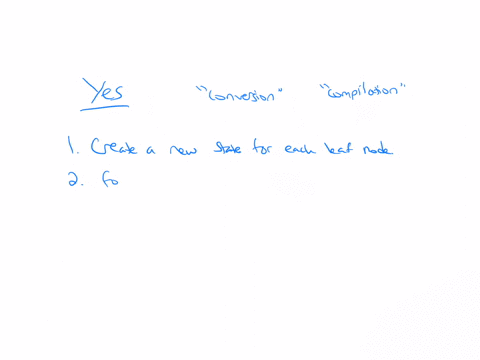 Yes "conversion" "compilation"
1. Create a new state for each leaf node
2. fo